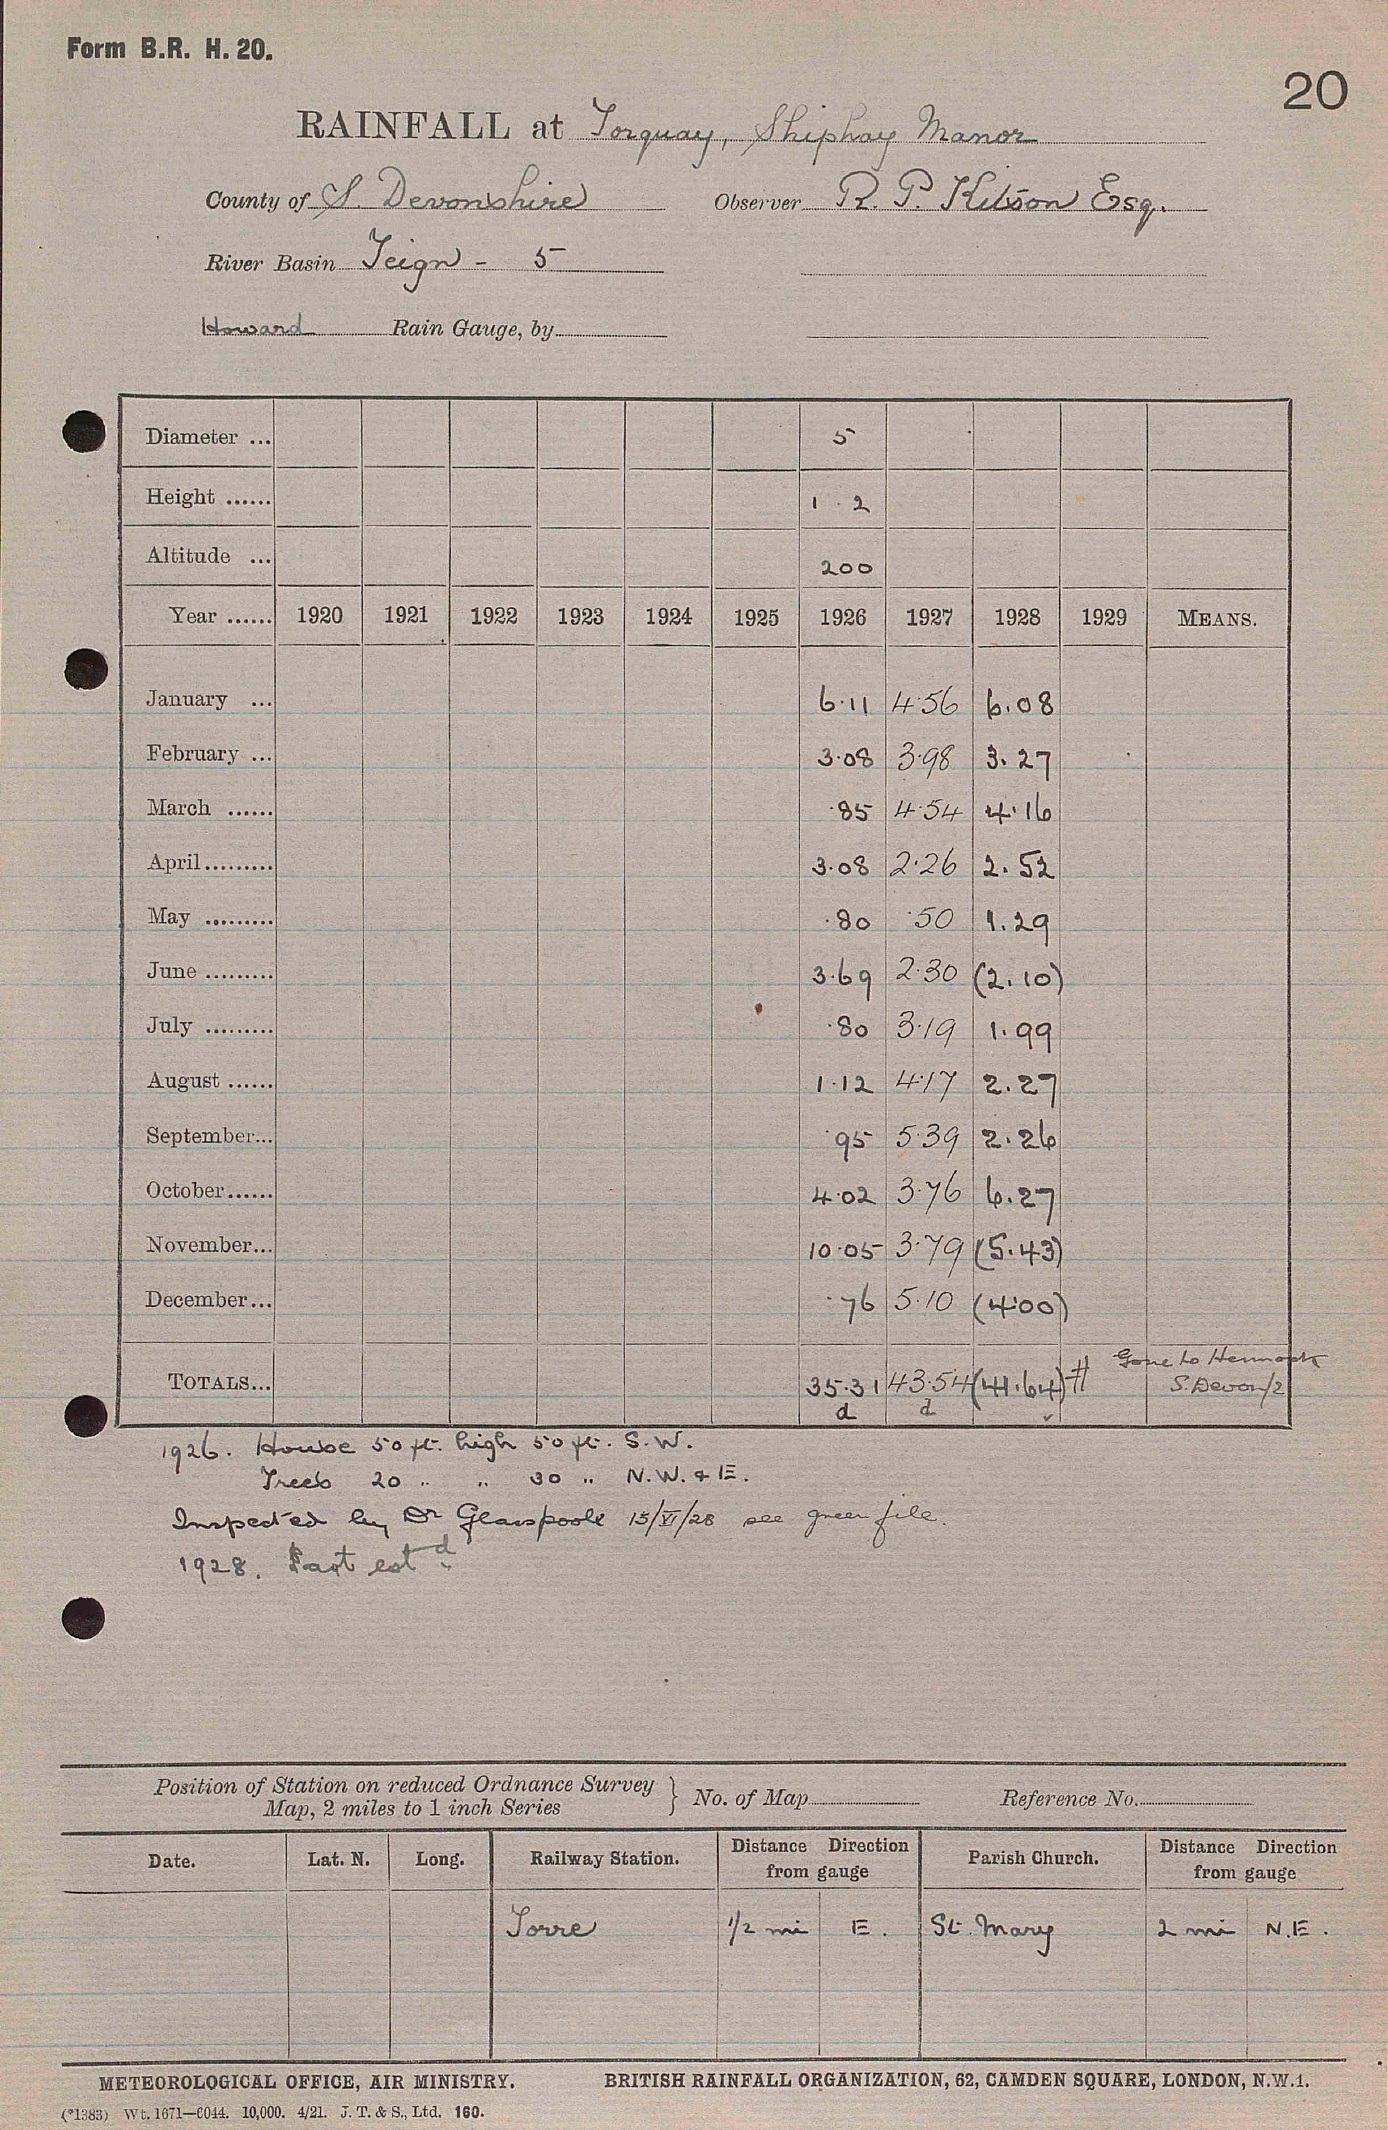 Form B.R. H. 20.
20
RAINFALL at Torquay, Shiphay Manor
County of S. Devonshire Observer R. P. Kitson Esq.
River Basin Teign - 5
Howard Rain Gauge, by
Diameter ... 5
Height ...... 1 . 2
Altitude ... 200
Year ...... 1920 1921 1922 1923 1924 1925 1926 1927 1928 1929 MEANS.
January ... 6.11 4.56 6.08
February ... 3.08 3.98 3.27
March ...... .85 4.54 4.16
April......... 3.08 2.26 2.52
May ......... .80 .50 1.29
June ......... 3.69 2.30 (2.10)
July ......... .80 3.19 1.99
August ...... 1.12 4.17 2.27
September... .95 5.39 2.26
October...... 4.02 3.76 6.27
November... 10.05 3.79 (5.43)
December... .76 5.10 (4.00)
TOTALS... 35.31 43.54 (41.64) # Gone to Hennock
d d S. Devon/2
1926. House 50 ft. high 50 ft. S.W.
Trees 20 " " 30 " N.W. & E.
Inspected by Dr Glasspoole 15/VI/28 see green file.
1928. Part estd
Position of Station on reduced Ordnance Survey Map, 2 miles to 1 inch Series } No. of Map Reference No.
Date. Lat. N. Long. Railway Station. Distance Direction from gauge Parish Church. Distance Direction from gauge
Torre 1/2 mi E. St. Mary 2 mi N.E.
METEOROLOGICAL OFFICE, AIR MINISTRY. BRITISH RAINFALL ORGANIZATION, 62, CAMDEN SQUARE, LONDON, N.W.1.
(*1383) Wt. 1671—6044. 10,000. 4/21. J. T. & S., Ltd. 160.